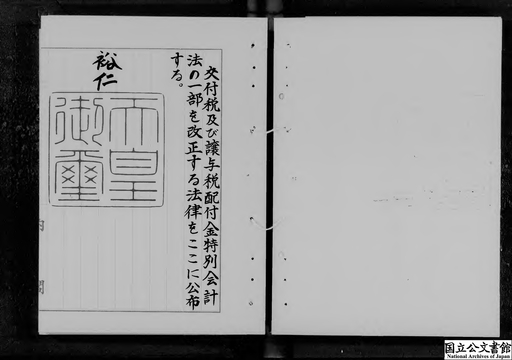 交付税及び譲与税配付金特別会計
法の一部を改正する法律をここに公布
する。
裕仁
天皇
御璽
国立公文書館
National Archives of Japan